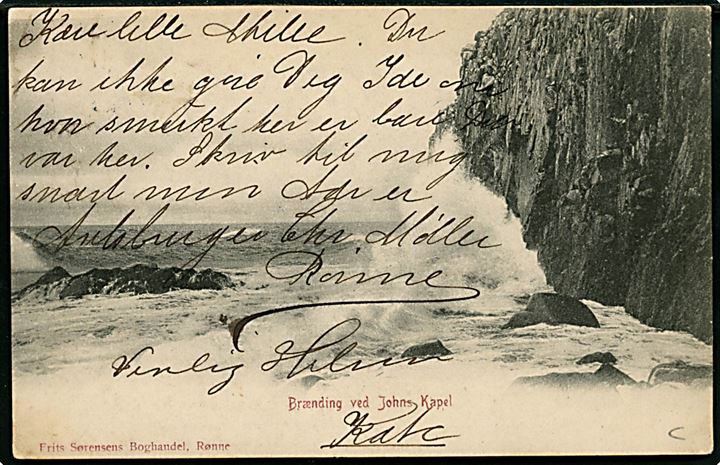 Kære lille Mille. Du
kan ikke gøre Deg Ide om
hvor smukt her er bare Du
var her. Skriv til mig
snart min Adr er
Avlsbruger Chr Møller
Rønne
Venlig Hilsen
Brænding ved Johns Kapel
Kate
Frits Sørensens Boghandel, Rønne